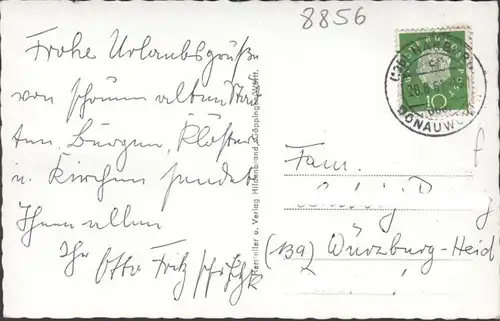 8856
Frohe Urlaubsgrüße
von schönen alten Städ
ten, Burgen, Klöster
u. Kirchen sendet
Ihnen allen
Ihr Otto Fritz
Hersteller u. Verlag Hildenbrand, Göppingen/Württ.
10
DONAUWÖR
Fam.
(13a) Würzburg-Heid